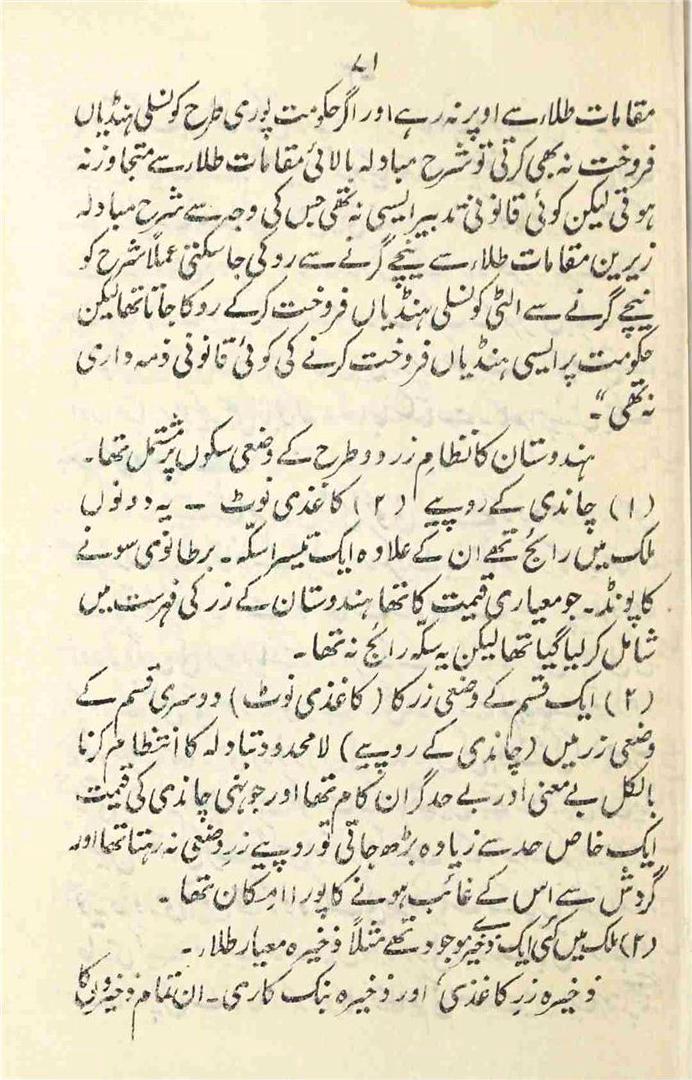 ۷۱
مقامات طلاء سے اوپر نہ رہے اور اگر حکومت پوری طرح کونسلی ہنڈیاں
فروخت نہ بھی کرتی تو شرح مبادلہ بالائی مقامات طلاء سے متجاوز نہ
ہوتی لیکن کوئی قانونی تدبیر ایسی نہ تھی جس کی وجہ سے شرح مبادلہ
زیرین مقامات طلاء سے نیچے گرنے سے روکی جا سکتی عملاً شرح کو
نیچے گرنے سے الٹی کونسلی ہنڈیاں فروخت کرکے روکا جاتا تھا لیکن
حکومت پر ایسی ہنڈیاں فروخت کرنے کی کوئی قانونی ذمہ داری
نہ تھی"۔
ہندوستان کا نظامِ زر دو طرح کے وضعی سکوں پر مشتمل تھا۔
(۱) چاندی کے روپیے (۲) کاغذی نوٹ ۔ یہ دونوں
ملک میں رائج تھے ان کے علاوہ ایک تیسرا سکّہ۔ برطانوی سونے
کا پونڈ۔ جو معیاری قیمت کا تھا ہندوستان کے زر کی فہرست میں
شامل کر لیا گیا تھا لیکن یہ سکّہ رائج نہ تھا۔
(۲) ایک قسم کے وضعی زر کا (کاغذی نوٹ) دوسری قسم کے
وضعی زر میں (چاندی کے روپیے) لا محدود تبادلہ کا انتظام کرنا
بالکل بے معنی اور بے حد گران کام تھا اور جونہی چاندی کی قیمت
ایک خاص حد سے زیادہ بڑھ جاتی تو روپیے زرِ وضعی نہ رہتا تھا اور
گردش سے اس کے غائب ہونے کا پورا امکان تھا۔
(۲) ملک میں کئی ایک ذخیرے موجود تھے مثلاً ذخیرہ معیار طلاء۔
ذخیرہ زرِ کاغذی، اور ذخیرہ بنک کاری۔ ان تمام ذخیروں کا